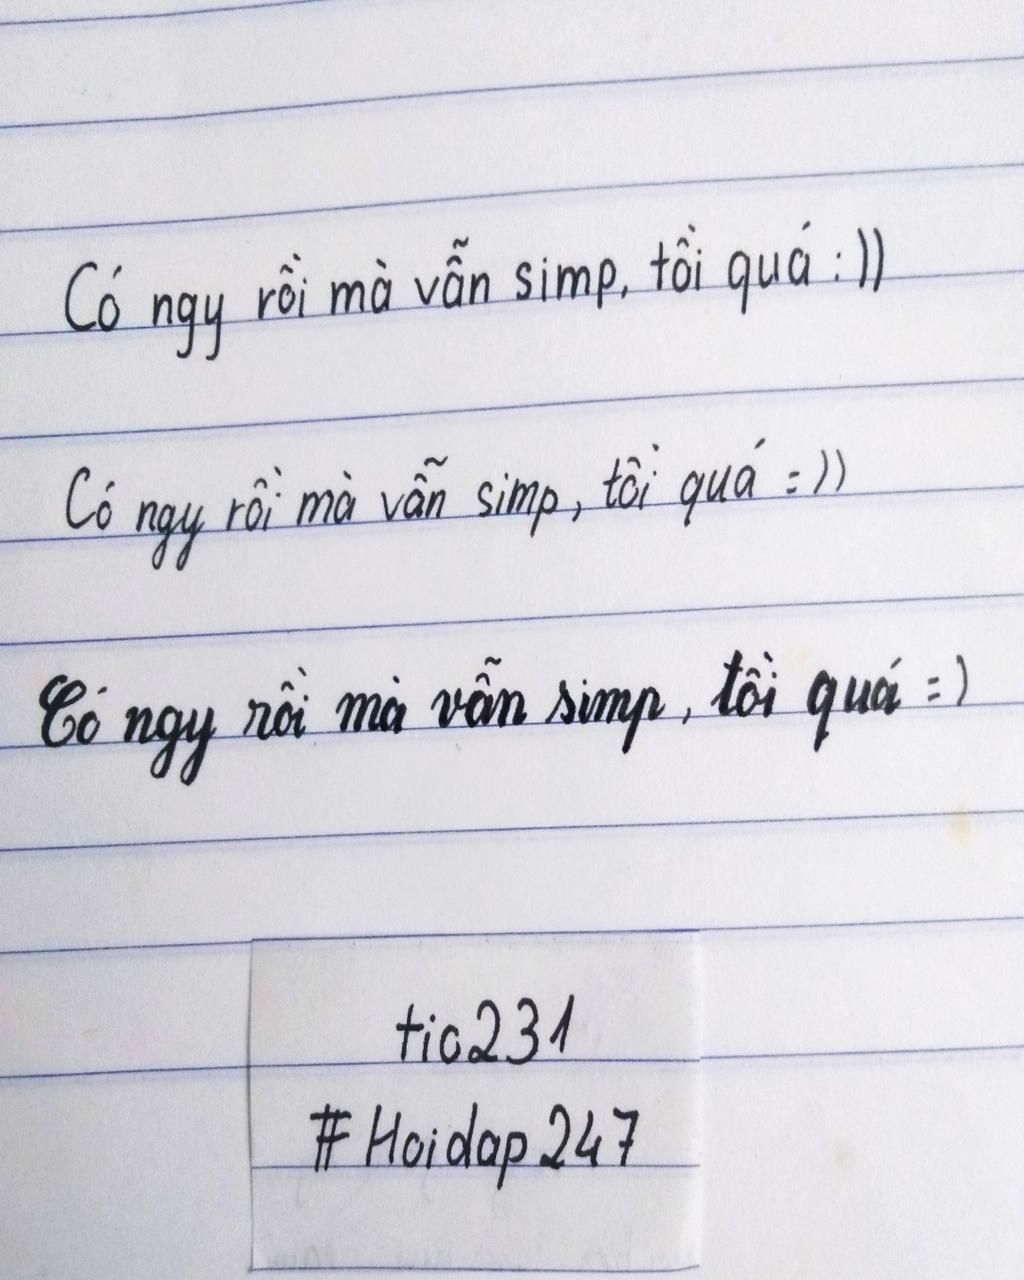 Có ngy rồi mà vẫn simp, tồi quá :))
Có ngy rồi mà vẫn simp, tồi quá =))
Có ngy rồi mà vẫn simp, tồi quá =)
tio231
#Hoidap247